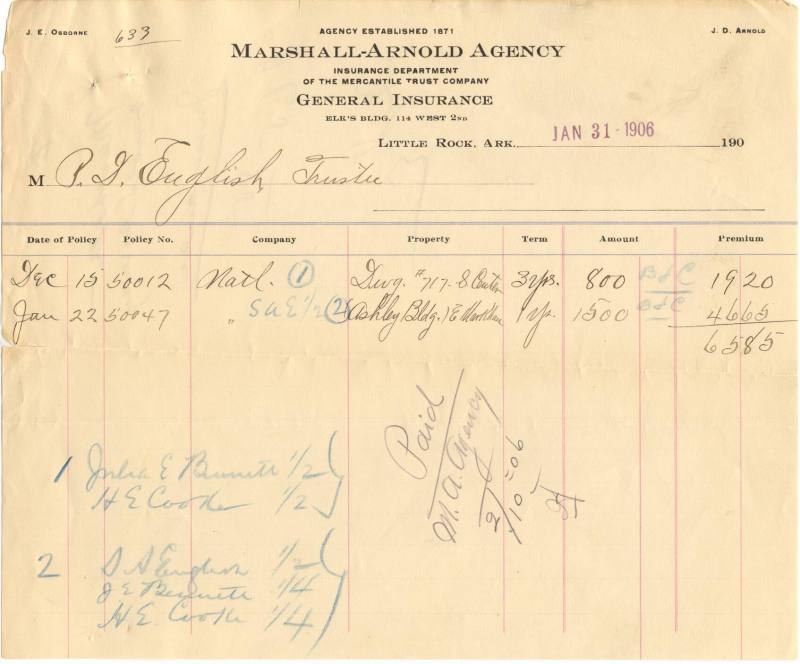 J. E. Osborne
633
AGENCY ESTABLISHED 1871
J. D. Arnold
MARSHALL-ARNOLD AGENCY
INSURANCE DEPARTMENT
OF THE MERCANTILE TRUST COMPANY
GENERAL INSURANCE
ELK'S BLDG. 114 WEST 2ND
LITTLE ROCK, ARK. JAN 31 1906 190
M P. D. English, Trustee
Date of Policy Policy No. Company Property Term Amount Premium
Dec 15 50012 Natl. 1 Dwg. #717 S Center 3 yrs. 800 B & C 1920
Jan 22 50047 " SAE 1/2 2 Ashley Bldg. E Markham 1 yr. 1500 B & C 4665
6585
Paid
M. A. Agency
2/10-06
1 Julia E Bennett 1/2
H E Cooke 1/2
2 S A English 1/2
J E Bennett 1/4
H. E. Cooke 1/4